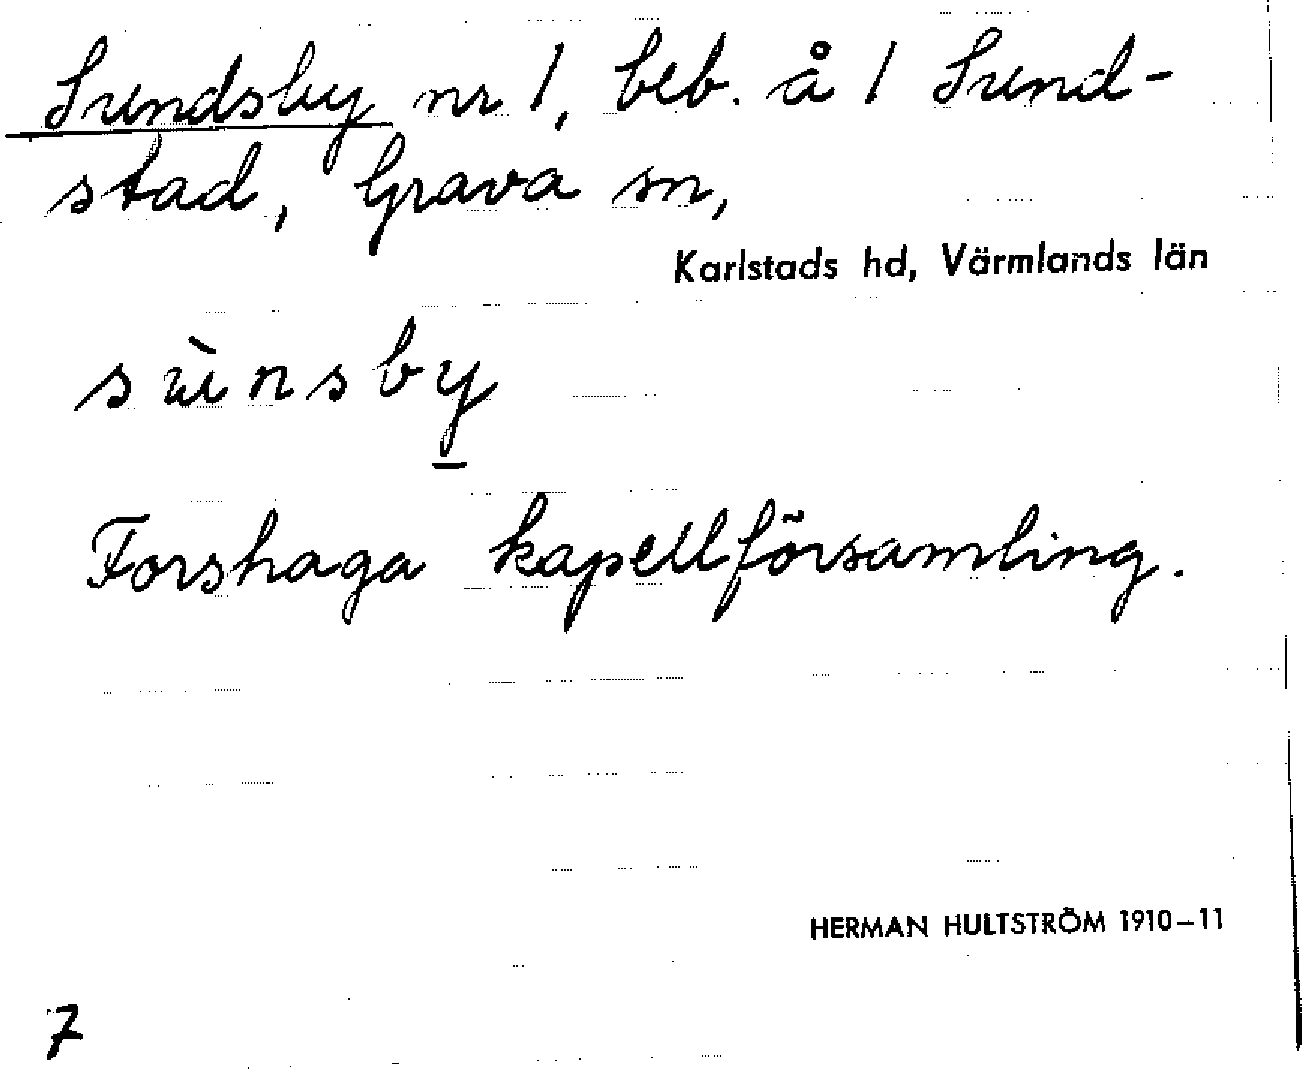 Sundsby nr 1, beb. å 1 Sund-
stad, Grava sn,
Karlstads hd, Värmlands län
sùnsby
Forshaga kapellförsamling.
HERMAN HULTSTRÖM 1910–11
7